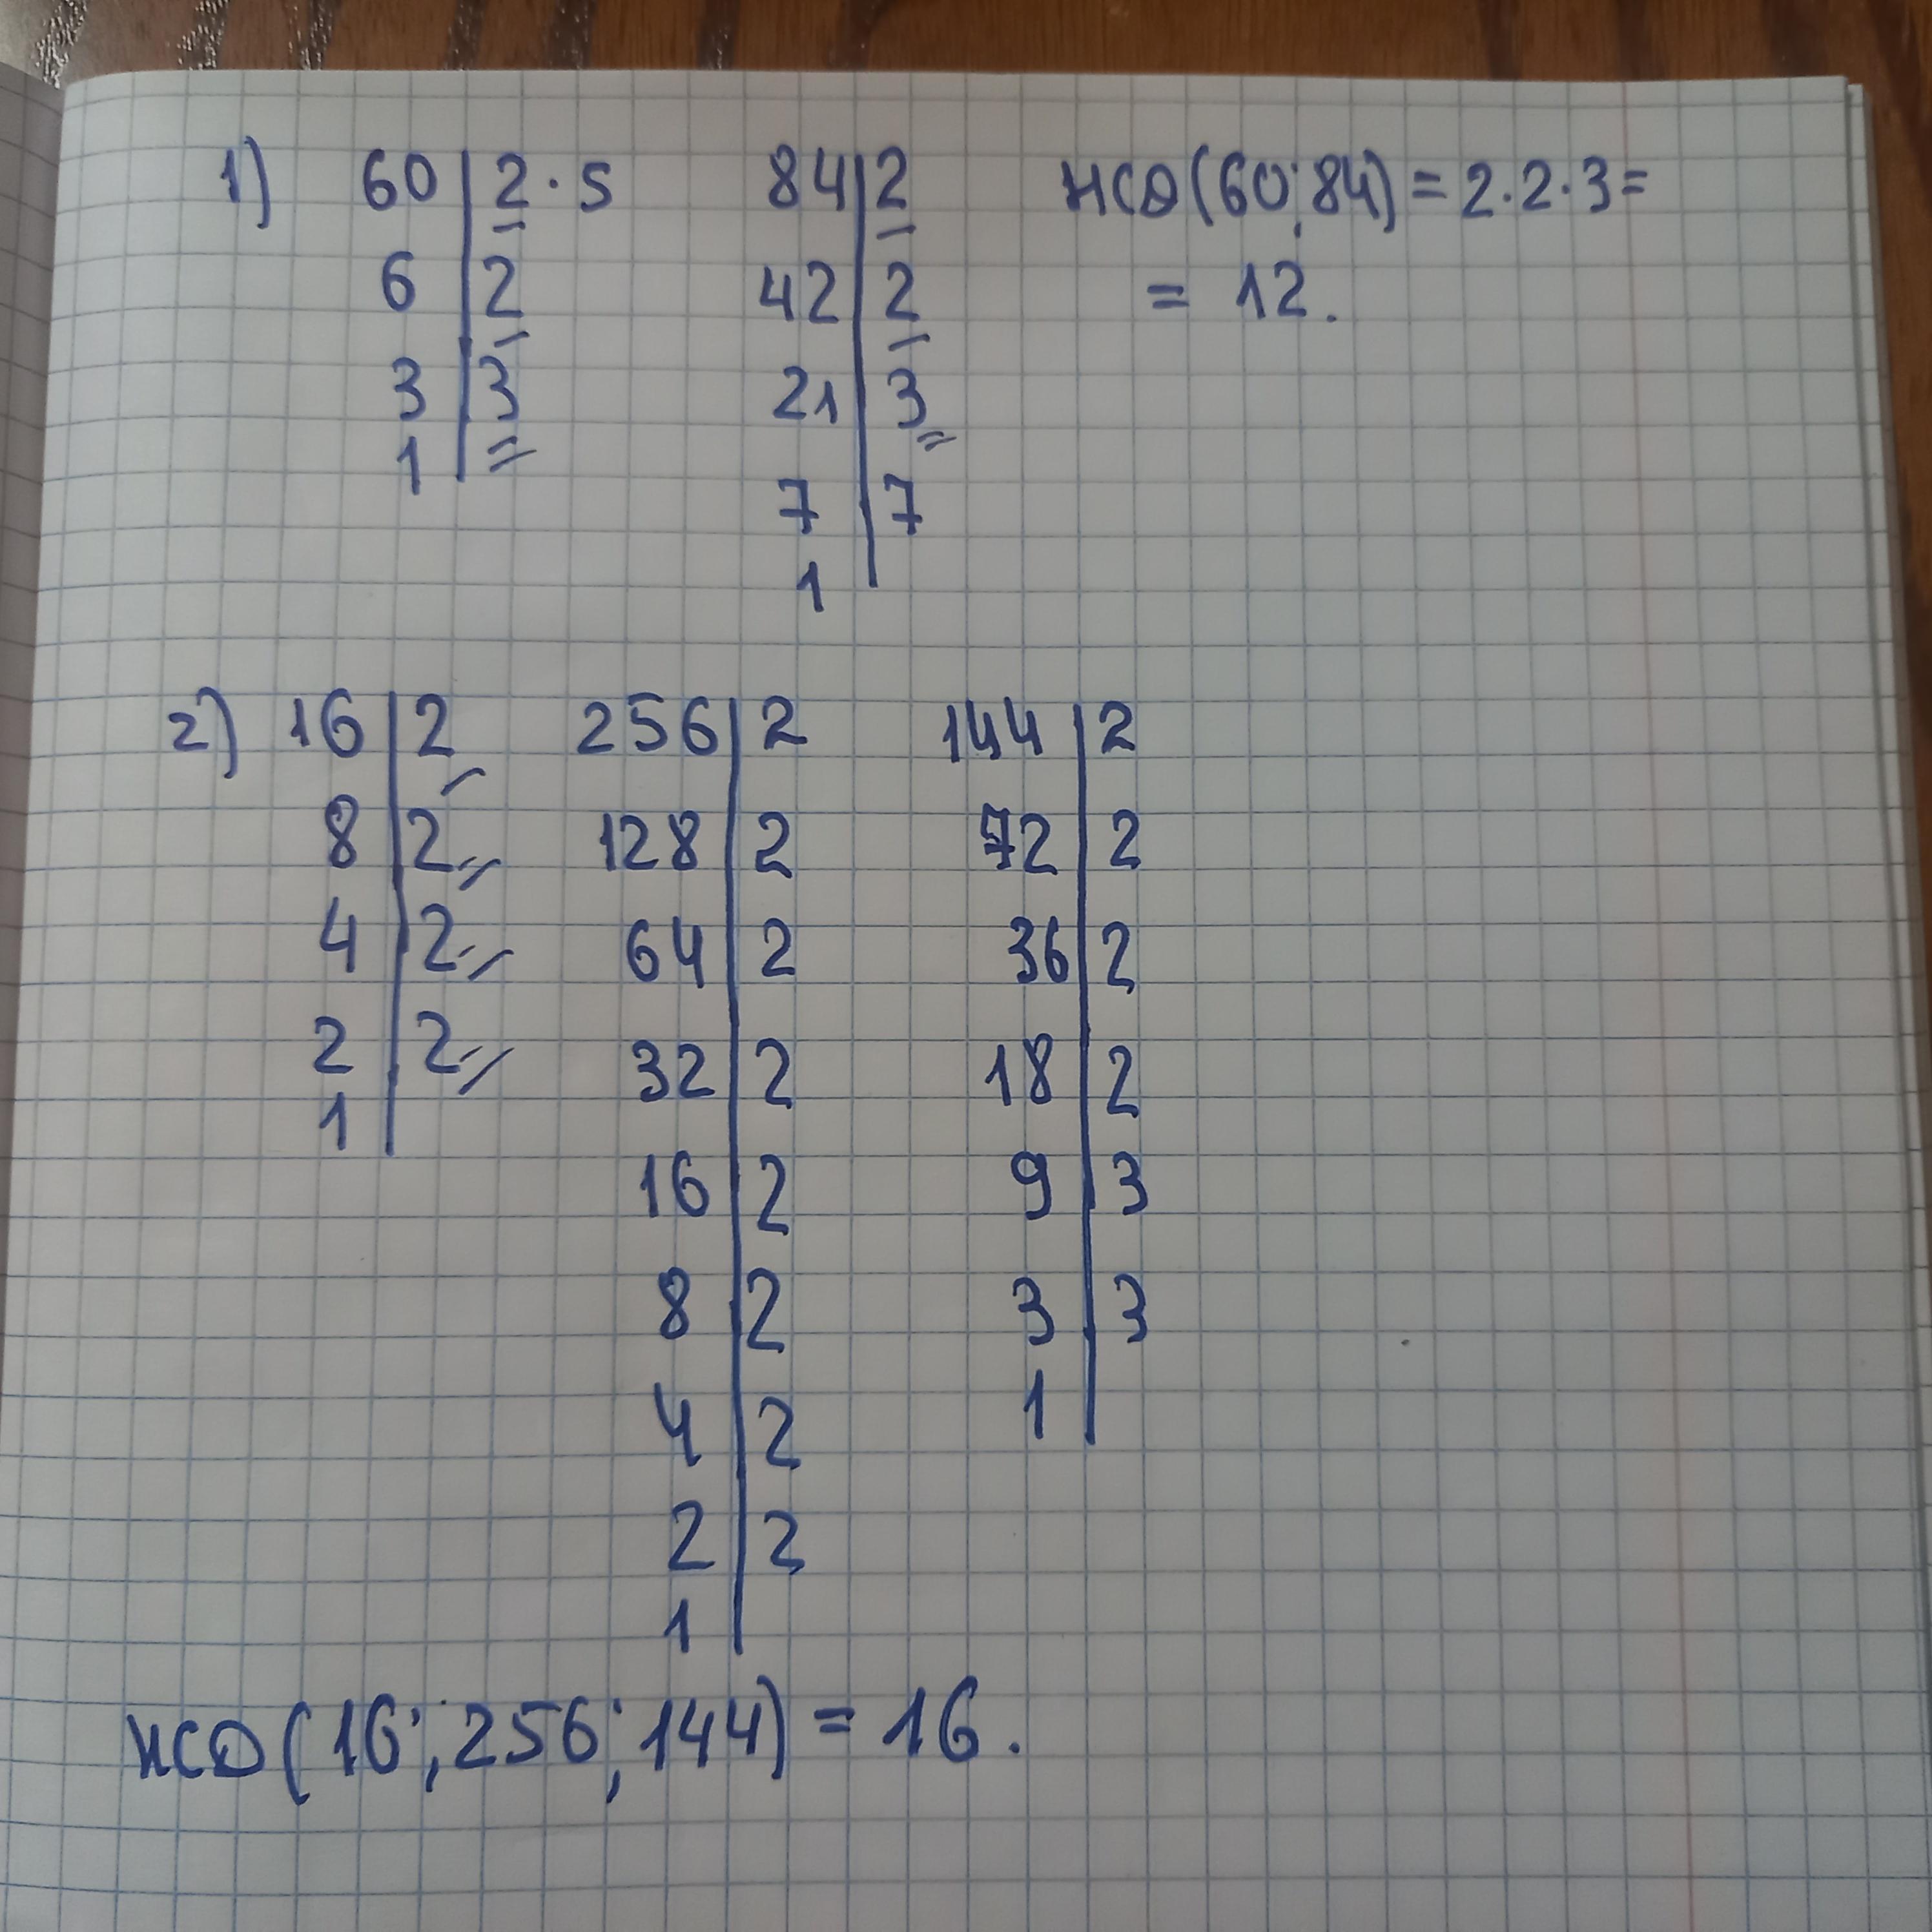 1) 60 | 2 · 5 84 | 2 НСД (60; 84) = 2 · 2 · 3 =
6 | 2 42 | 2 = 12.
3 | 3 21 | 3
1 7 | 7
1
2) 16 | 2 256 | 2 144 | 2
8 | 2 128 | 2 72 | 2
4 | 2 64 | 2 36 | 2
2 | 2 32 | 2 18 | 2
1 16 | 2 9 | 3
8 | 2 3 | 3
4 | 2 1
2 | 2
1
НСД (16; 256; 144) = 16.